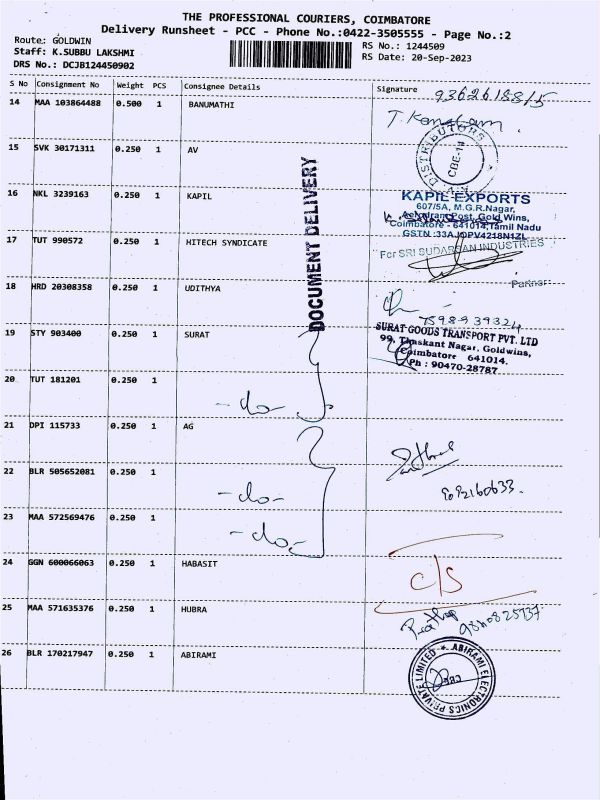 THE PROFESSIONAL COURIERS, COIMBATORE
Delivery Runsheet - PCC - Phone No.:0422-3505555 - Page No.:2
Route: GOLDWIN
Staff: K.SUBBU LAKSHMI
DRS No.: DCJB124450902
RS No.: 1244509
RS Date: 20-Sep-2023
S No Consignment No Weight PCS Consignee Details Signature
9362618815
14 MAA 103864488 0.500 1 BANUMATHI
DISTRIBUTORS
CBE-14
15 SVK 30171311 0.250 1 AV
DOCUMENT DELIVERY
16 NKL 3239163 0.250 1 KAPIL
KAPIL EXPORTS
607/5A, M.G.R.Nagar,
Aerodram Post, Gold Wins,
Coimbatore - 641014, Tamil Nadu
GSTN :33AJOPV4218N1ZL
17 TUT 990572 0.250 1 HITECH SYNDICATE
For SRI SUDARSAN INDUSTRIES
Partner
18 HRD 20308358 0.250 1 UDITHYA
7598939324
19 STY 903400 0.250 1 SURAT
SURAT GOODS TRANSPORT PVT. LTD
99, Thaskant Nagar, Goldwins,
Coimbatore 641014.
Ph : 90470-28787
20 TUT 181201 0.250 1
-do-
21 DPI 115733 0.250 1 AG
22 BLR 505652081 0.250 1
-do-
23 MAA 572569476 0.250 1
-do-
24 GGN 600066063 0.250 1 HABASIT
c/s
25 MAA 571635376 0.250 1 HUBRA
26 BLR 170217947 0.250 1 ABIRAMI
ABIRAMI ELECTRONICS PRIVATE LIMITED